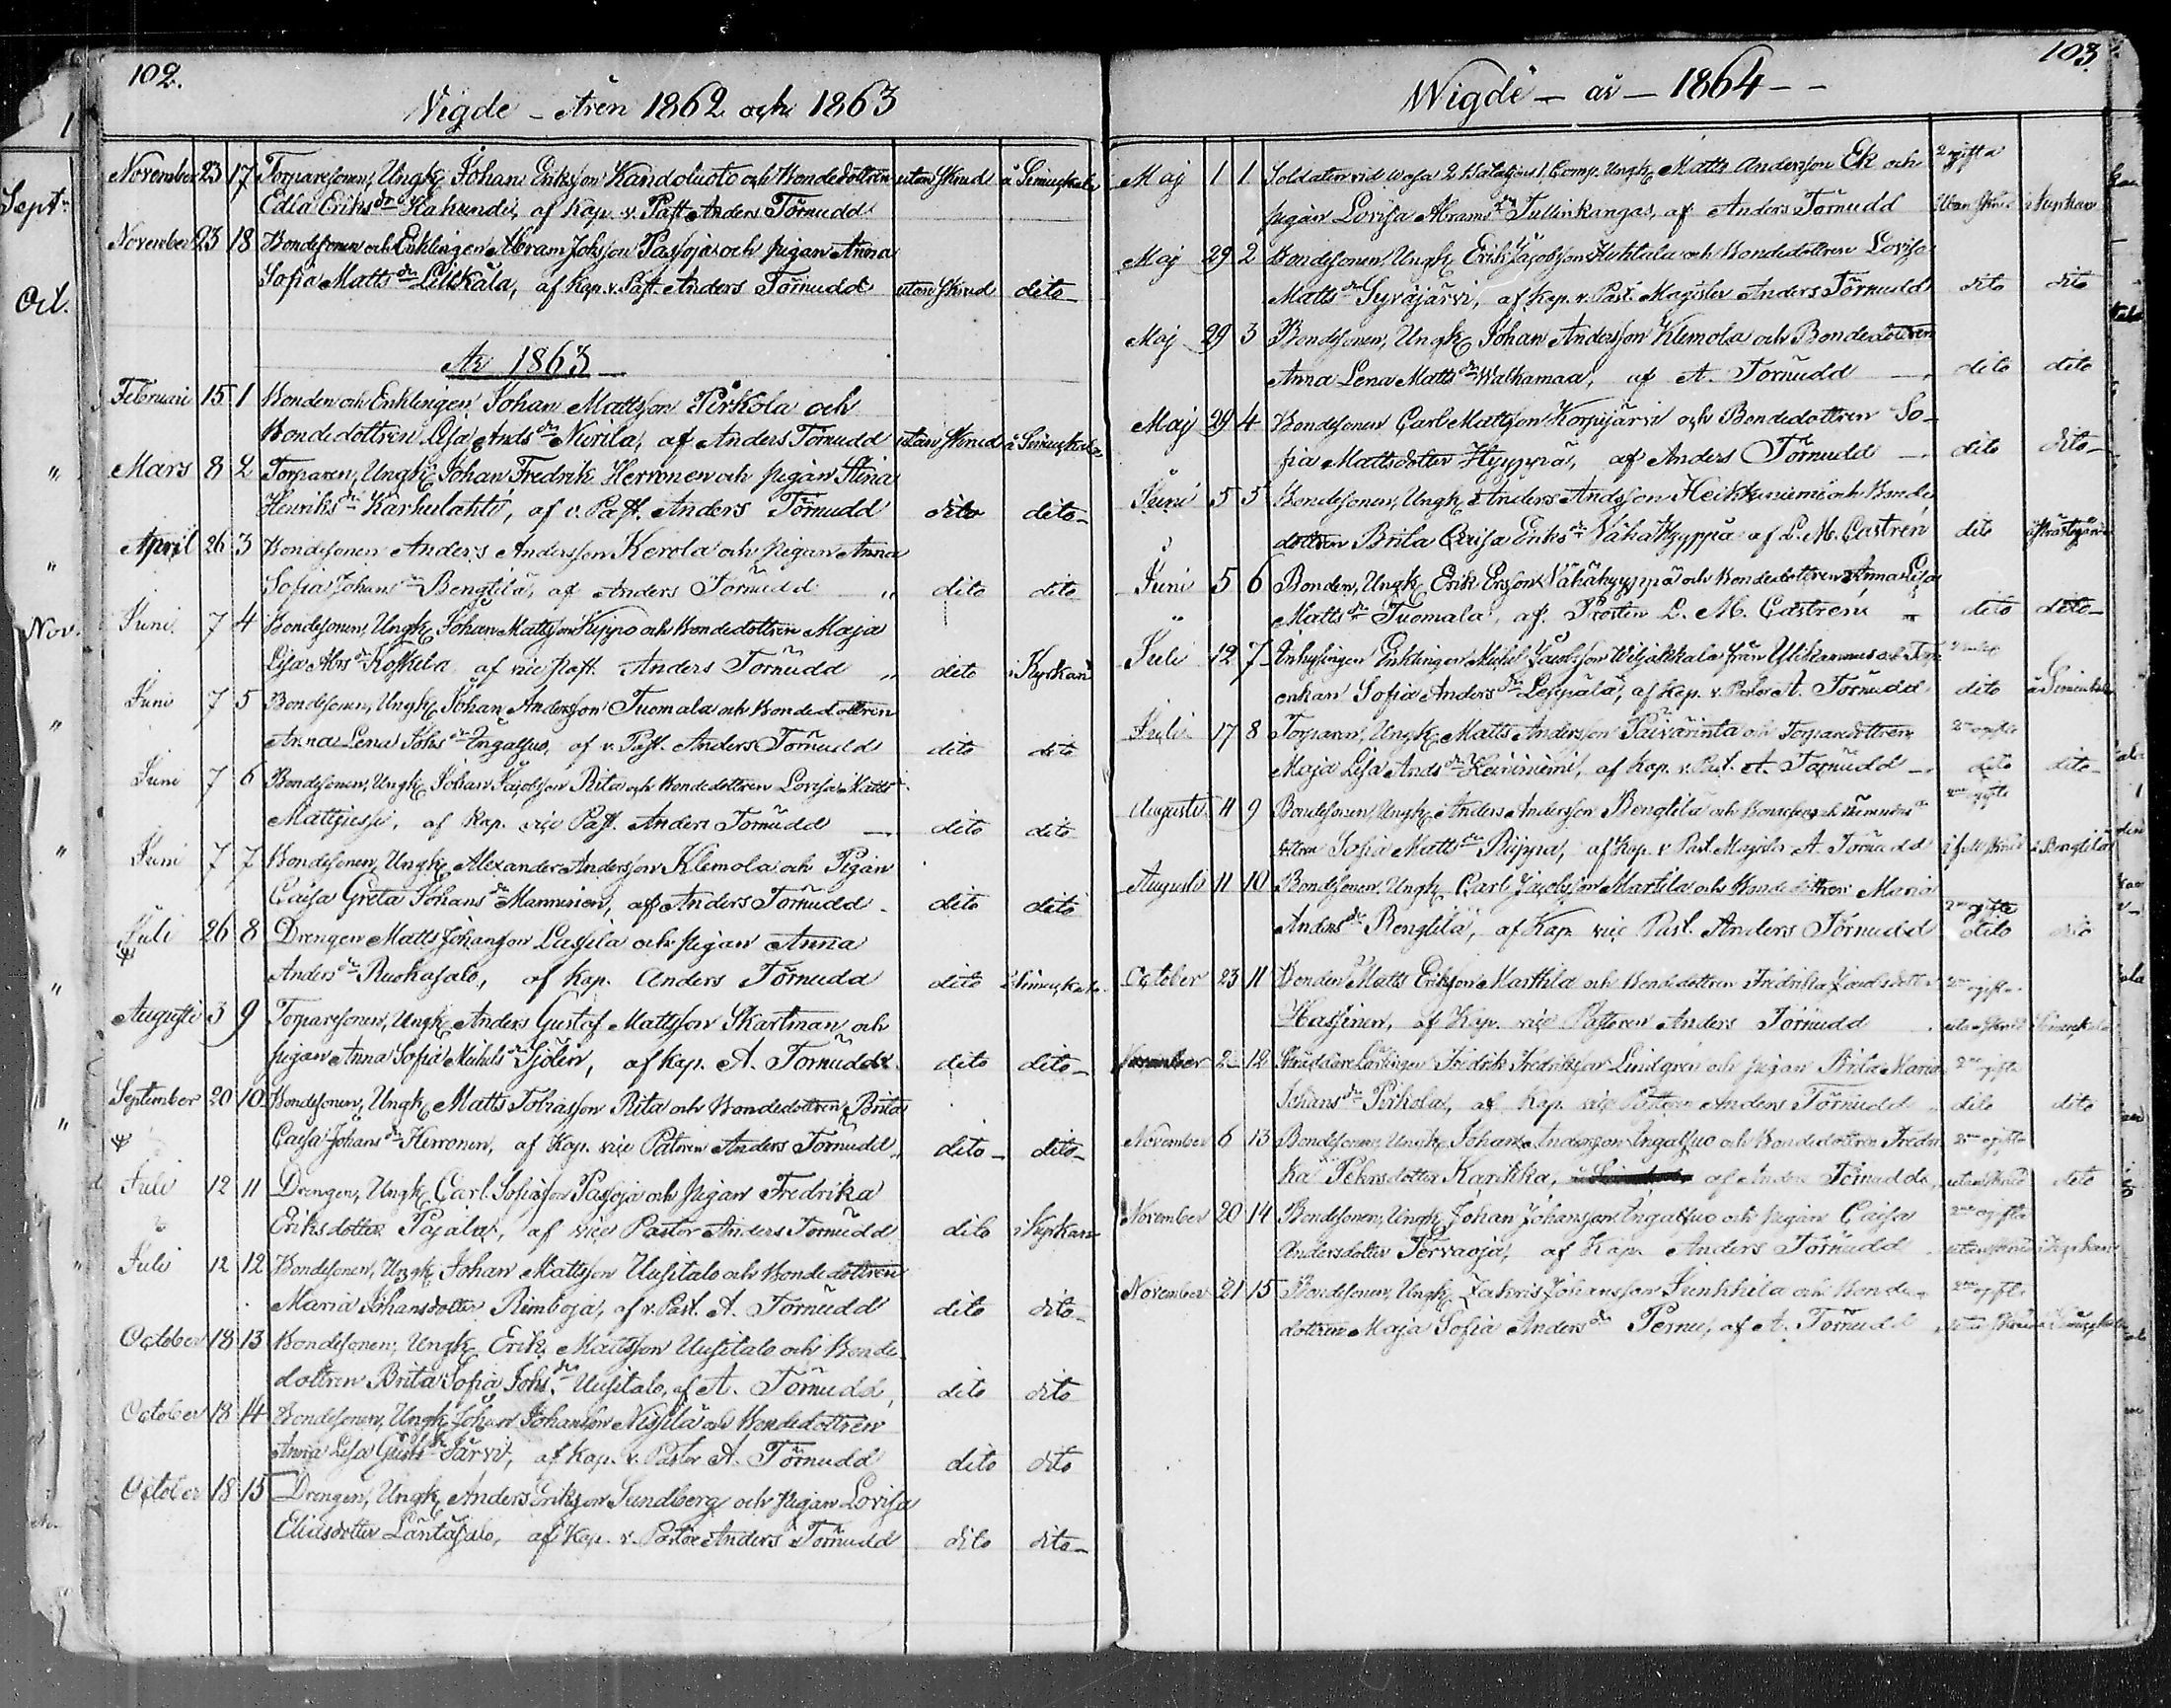 102.
Vigde - Åren 1862 och 1863
November 23 17 Torparesonen, Ungk. Johan Eriksson Kandoluoto och Bondedottren utan skrud å Simuskala
Edla Eriks dr Hakunde, af Kap. v. Past Anders Törnudd
November 23 18 Bondesonen och Enklingen Abram Johsson Passoja och pigan Anna
Sofia Matts dr Lillkåla, af Kap. v. Past. Anders Törnudd utan skrud dito
År 1863
Februari 15 1 Bonden och Enklingen Johan Mattsson Pirkola och
Bondedottren Lisa Ands dr Niurila, af Anders Törnudd utan skrud å Simuskala
Mars 8 2 Torparen, Ungk. Johan Fredrik Herronen och pigan Stina
Henriks dr Karhulahti, af v. Past. Anders Törnudd dito dito
April 26 3 Bondesonen Anders Andersson Kerola och pigan Anna
Sofia Johans dr Bengtilä, af Anders Törnudd dito dito
Juni 7 4 Bondesonen, Ungk. Johan Mattsson Kippo och Bondedottren Maja
Lisa Abrs dr Koskela af vice past. Anders Törnudd dito i Kyrkan
Juni 7 5 Bondesonen, Ungk. Johan Andersson Tuomala och Bondedottren
Anna Lena Johs dr Ingalsuo, af v. Past. Anders Törnudd dito dito
Juni 7 6 Bondesonen, Ungk. Johan Jacobsson Rita och Bondedottren Lovisa Matts dr
af Kap. vice Past. Anders Törnudd dito dito
Juni 7 7 Bondesonen, Ungk. Alexander Andersson Klemola och Pigan
Caisa Greta Johans dr Manninen, af Anders Törnudd dito dito
Juli 26 8 Drengen Matts Johansson Lassila och pigan Anna
Anders dr Ruohasalo, af Kap. Anders Törnudd dito å Simuskala
Augusti 3 9 Torparesonen, Ungk. Anders Gustaf Mattsson Skartman och
pigan Anna Sofia Michels dr Sjölin, af Kap. A. Törnudd dito dito
September 20 10 Bondesonen, Ungk. Matts Tobiasson Rita och Bondedottren Brita
Caisa Johans dr Herronen, af Kap. vice Pastoren Anders Törnudd dito dito
Juli 12 11 Drengen, Ungk. Carl Sofiasson Passoja och pigan Fredrika
Eriksdotter Pajala, af vice Pastor Anders Törnudd dito i Kyrkan
Juli 12 12 Bondesonen, Ungk. Johan Mattsson Uusitalo och Bondedottren
Maria Johansdotter Rimboja, af v. Past. A. Törnudd dito dito
October 18 13 Bondesonen, Ungk. Erik Mattsson Uusitalo och Bonde
dottren Brita Sofia Johs. dr Uusitalo, af A. Törnudd, dito dito
October 18 14 Bondesonen, Ungk. Johan Johansson Nissilä och Bondedottren
Anna Lisa Gusts dr Järvi, af Kap. v. Pastor A. Törnudd dito dito
October 18 15 Drengen, Ungk. Anders Eriksson Sundberg och pigan Lovisa
Eliasdotter Läntäsalo, af Kap. v. Pastor Anders Törnudd dito dito
103.
Wigde - år - 1864 - -
Maj 1 1. Soldaten vid Wasa 2 Bataljons 1. Comp. Ungk. Matts Andersson Ek och 2 ogifta
pigan Lovisa Abrams dr Tullinkangas, af Anders Törnudd utan skrud i Kyrkan
Maj 29 2 Bondesonen, Ungk. Erik Jacobsson Huhtala och Bondedottren Lovisa
Matts dr Syväjärvi, af Kap. v. Past. Magister Anders Törnudd dito dito
Maj 29 3 Bondesonen, Ungk. Johan Andersson Klemola och Bondedottren
Anna Lena Matts dr Walkamaa, af A. Törnudd dito dito
Maj 29 4 Bondesonen Carl Mattsson Korpijärvi och Bondedottren So-
fia Mattsdotter Hyyppä, af Anders Törnudd dito dito
Juni 5 5 Bondesonen, Ungk. Anders Andsson Heikkiniemi och Bonde
dottren Brita Caisa Eriks dr Vähähyyppä af L. M. Castrén dito
Juni 5 6 Bonden, Ungk. Erik Ersson Vähähyyppä och Bondedottren Anna Lisa
Matts dr Tuomala, af Prosten L. M. Castrén dito dito
Juli 12 7 Inhysingen Enklingen Michel Jacobsson Wiljakkala från och
enkan Sofia Anders dr Leppälä, af Kap. v. Pastor A. Törnudd dito å Simuskala
Juli 17 8 Torparen, Ungk. Matts Andersson Päivärinta och Torparedottren 2ne ogifta
Maja Lisa Ands dr Keininiemi, af Kap. v. Past. A. Törnudd dito dito
Augusti 11 9 Bondesonen, Ungk. Anders Andersson Bengtilä och 2ne ogifte
dottren Sofia Matts dr Piippa, af Kap. v Past. Magister A. Törnudd i full skrud i Bengtilä
Augusti 11 10 Bondesonen, Ungk. Carl Jacobsson Martila och Bondedottren Maria 2ne ogifta
Anders dr Bengtilä, af Kap. vice Past. Anders Törnudd dito dito
October 23 11 Bonden Matts Eriksson Marttila och Bondedottren Fredrika 2ne ogifta
Hassinen, af Kap. vice Pastoren Anders Törnudd utan skrud Simuskala
November 2 12 Skräddare Lärlingen Fredrik Fredriksson Lindgren och pigan Brita Maria 2ne ogifta
Johans dr Pirkola, af Kap. vice Pastoren Anders Törnudd dito dito
November 6 13 Bondesonen, Ungk. Johan Andersson Ingalsuo och Bondedottren Fredri 2ne ogifta
ka Pehrsdotter Karikka, af Anders Törnudd, utan skrud dito
November 20 14 Bondesonen, Ungk. Johan Johansson Ingalsuo och pigan Caisa 2ne ogifta
Andersdotter Tervaoja, af Kap. Anders Törnudd utan skrud i Kyrkan
November 21 15 Bondesonen, Ungk. Zakris Johansson Junkkila och Bonde- 2ne ogifta
dottren Maja Sofia Anders dr Pernu, af A. Törnudd utan skrud i Simuskala
Sept.
Oct.
Nov.